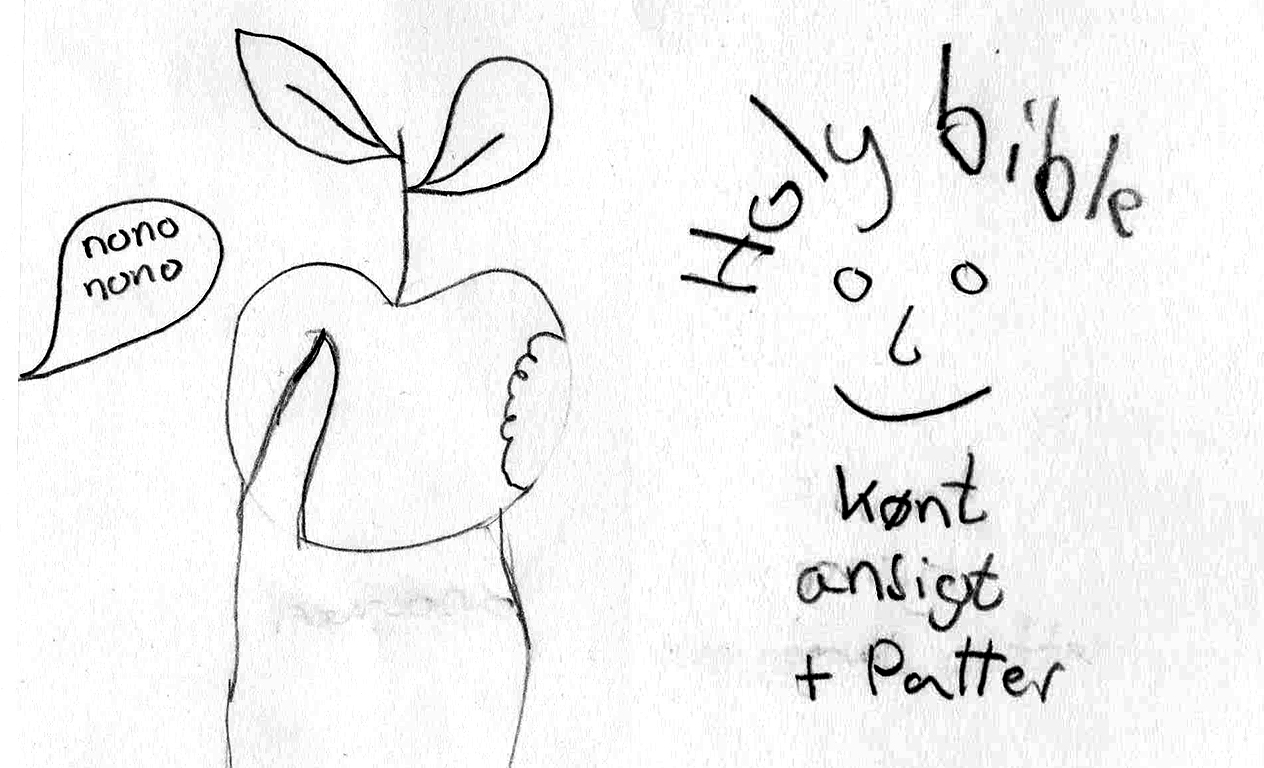 nono
nono
Holy bible
kønt
ansigt
+ Patter